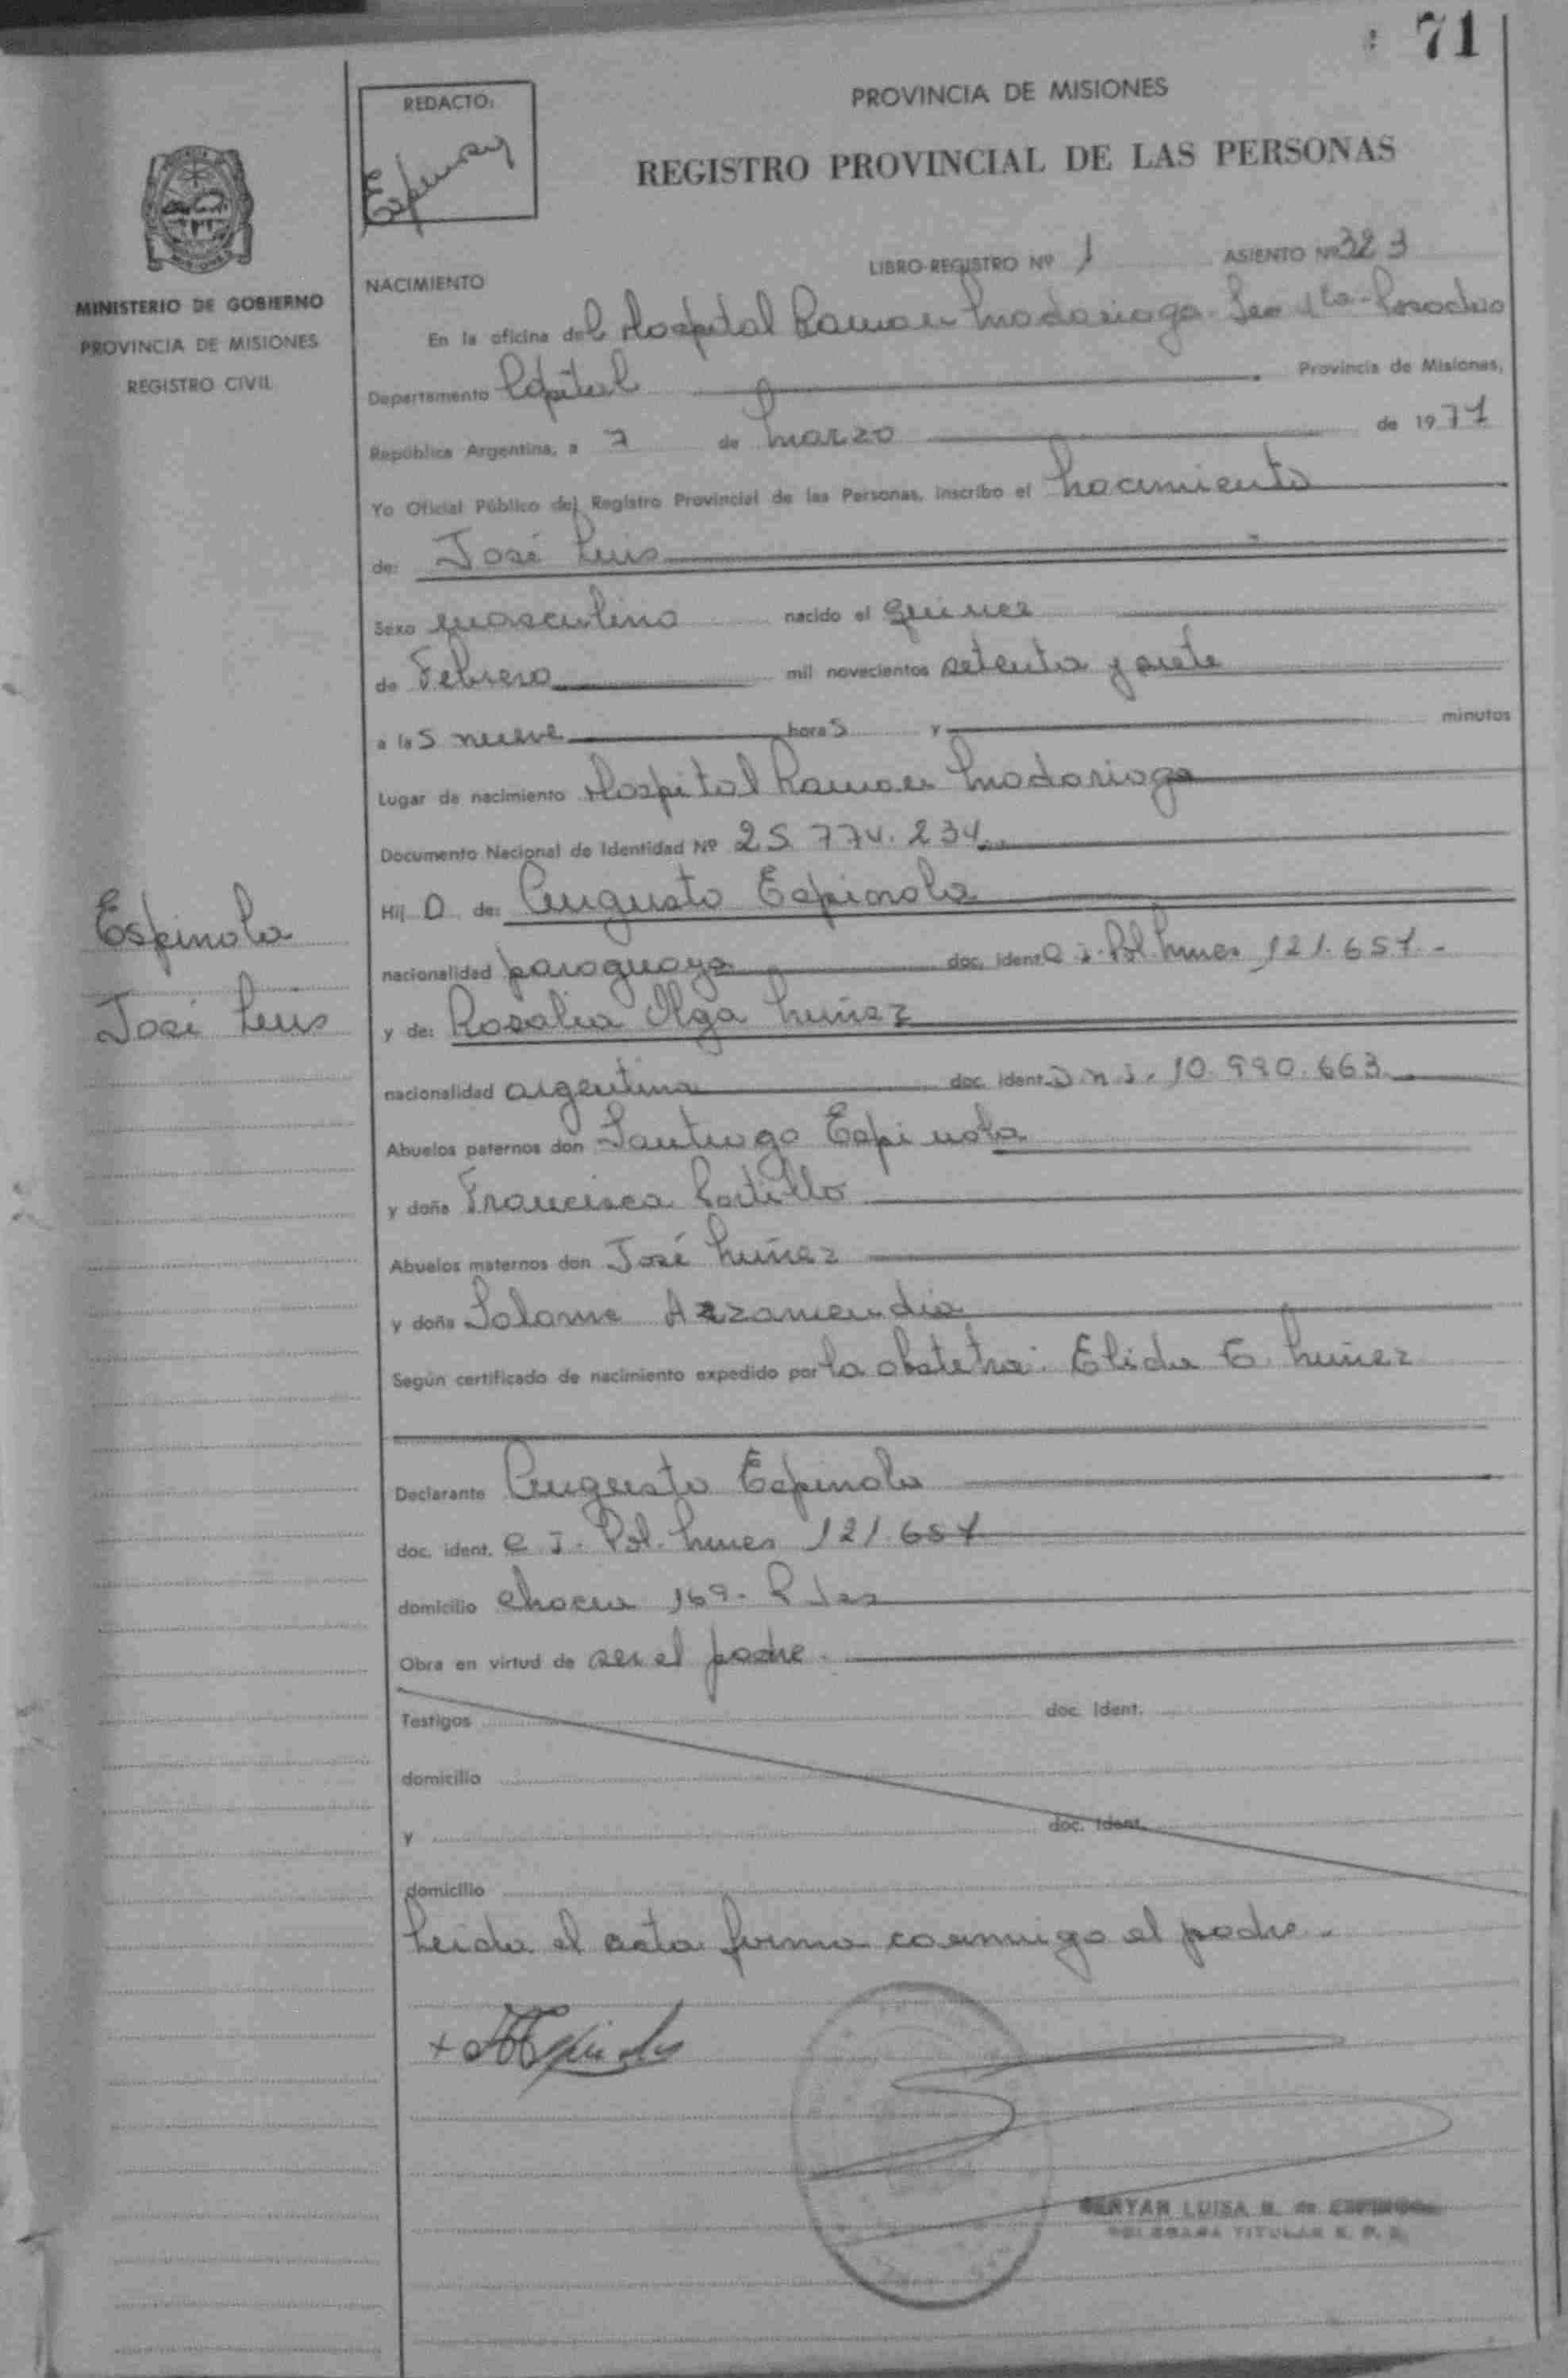 71
REDACTO:
PROVINCIA DE MISIONES
REGISTRO PROVINCIAL DE LAS PERSONAS
MINISTERIO DE GOBIERNO
PROVINCIA DE MISIONES
REGISTRO CIVIL
LIBRO-REGISTRO Nº 1 ASIENTO Nº 323
NACIMIENTO
En la oficina del Hospital Ramon Madariaga Posadas
Departamento Capital Provincia de Misiones,
República Argentina, a 7 de Marzo de 1977
Yo Oficial Público del Registro Provincial de las Personas, inscribo el Nacimiento
de: José Luis
Sexo masculino nacido el quince
de Febrero mil novecientos setenta y siete
a las nueve horas y minutos
Lugar de nacimiento Hospital Ramon Madariaga
Documento Nacional de Identidad Nº 25.774.234
Hijo de: Augusto Espinola
nacionalidad paraguaya doc. ident. C.I. Pol. Mnes 121.657-
y de: Rosalia Olga Nuñez
nacionalidad argentina doc. ident. D.N.I. 10.990.663
Abuelos paternos don Santiago Espinola
y doña Francisca Portillo
Abuelos maternos don José Nuñez
y doña Salome Arzamendia
Según certificado de nacimiento expedido por la obstetra: Elida E. Nuñez
Espinola
José Luis
Declarante Augusto Espinola
doc. ident. C.I. Pol. Mnes 121.657
domicilio 169.
Obra en virtud de ser el padre.
Testigos doc. ident.
domicilio
y doc. ident.
domicilio
Leida el acta firma conmigo el padre.
LUISA
TITULAR